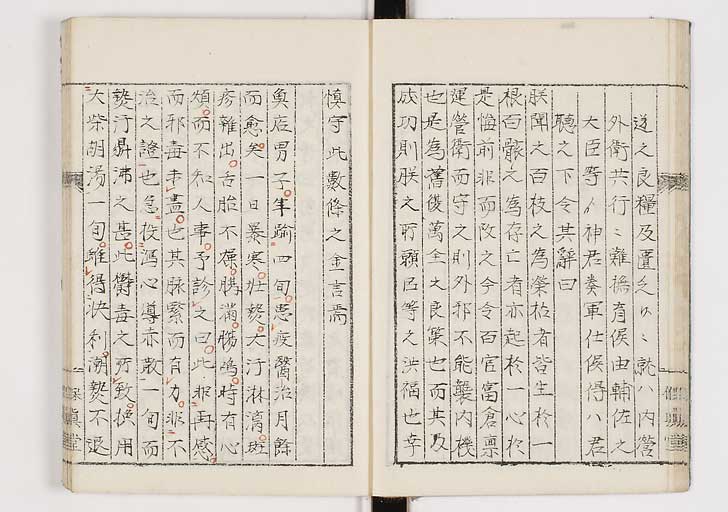 道之良糧及置
外衛共行二難撓育侯由輔佐之
大臣等神君奏軍仕侯得ハ君
聽之下令其辭曰
朕聞之百枝之為榮枯者皆生於一
根百骸之為存亡者亦起於一心於
是悔前非而改之今令百官富倉稟
運營衛而守之則外邪不能襲內機
也是為舊復萬全之良策也而其及
成功則朕之所願臣等之洪福也幸
慎守此數條之金言焉
魚店男子年踰四旬患疫醫治月餘
而愈矣一日暴寒壯熱大汗淋漓斑
疹雜出舌胎不燥腸滿腸鳴時有心
煩而不知人事予診之曰此非再感
而邪毒未盡也其脉緊而有力非不
治之證也急投瀉心導赤散一旬而
熱汗鼎沸之甚此欝毒之所致換用
大柴胡湯一旬雖得快利潮熱不退